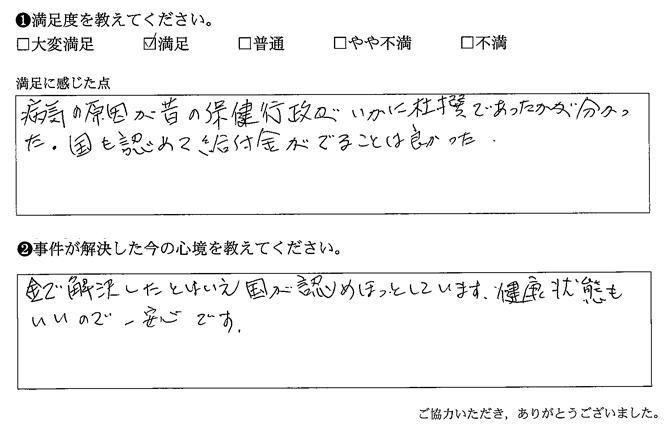 ❶満足度を教えてください。
□大変満足 ☑満足 □普通 □やや不満 □不満
満足に感じた点
病気の原因が昔の保健行政がいかに杜撰であったかが分かっ
た。国も認めて給付金がでることは良かった.
❷事件が解決した今の心境を教えてください。
金で解決したとはいえ国が認めほっとしています、健康状態も
いいので一安心です.
ご協力いただき，ありがとうございました。